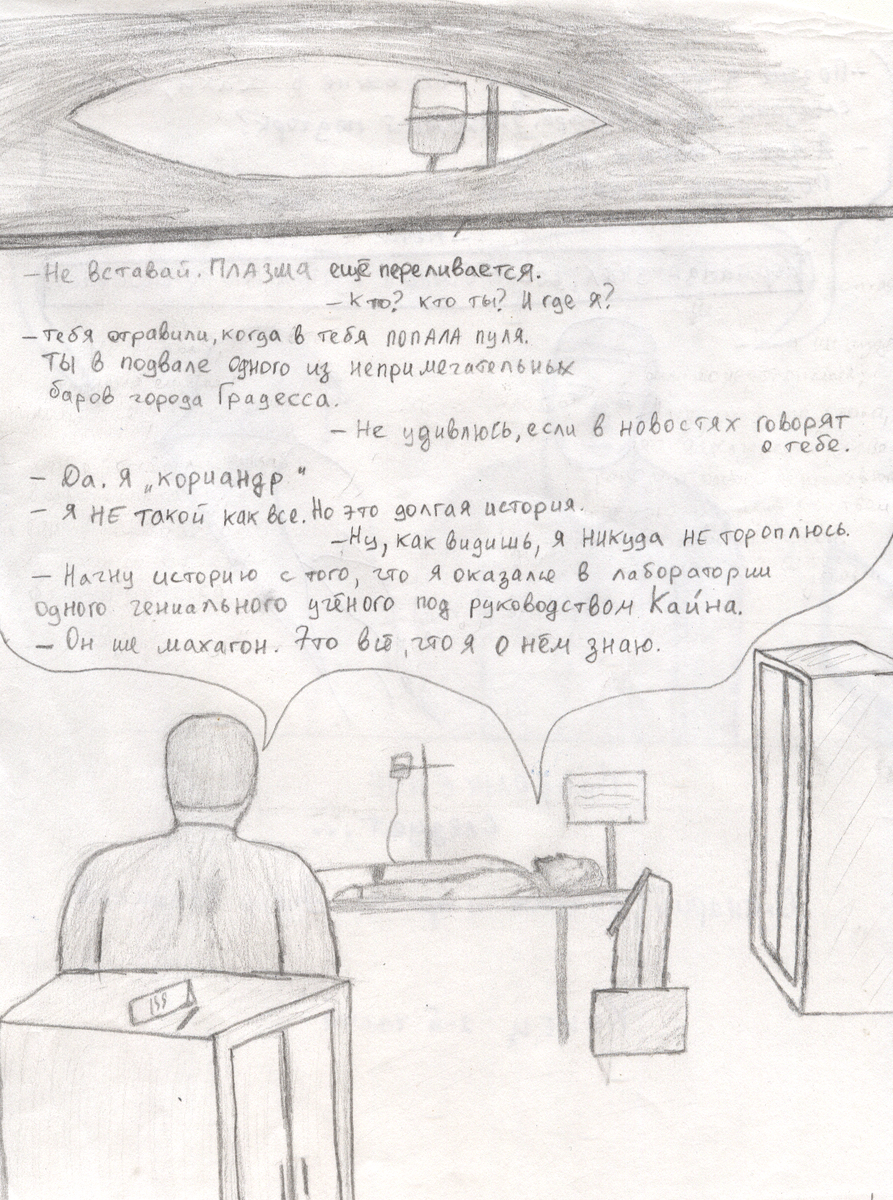 — Не вставай. Плазма ещё переливается.
— Кто? кто ты? И где я?
— тебя отравили, когда в тебя попала пуля.
Ты в подвале одного из непримечательных
баров города Градесса.
— Не удивлюсь, если в новостях говорят
о тебе.
— Да. Я „кориандр"
— Я НЕ такой как все. Но это долгая история.
— Ну, как видишь, я никуда НЕ тороплюсь.
— Начну историю с того, что я оказалсе в лаборатории
одного гениального учёного под руководством Кайна.
— Он ше махагон. Это всё, что я о нём знаю.